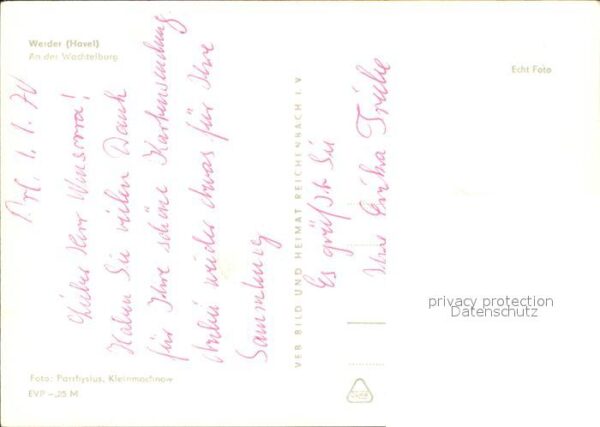 Werder (Havel)
An der Wachtelburg
Echt Foto
1.1.70
Lieber Herr
Haben Sie vielen Dank
für Ihre schöne Kartensendung.
Anbei wieder etwas für Ihre
Sammlung
Es grüßt Sie
Ihre Erika
VEB BILD UND HEIMAT REICHENBACH i. V.
privacy protection
Datenschutz
Foto: Parrhysius, Kleinmachnow
EVP -,25 M